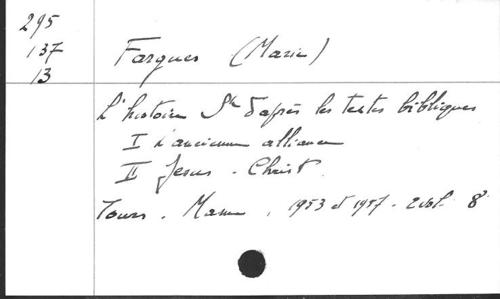 295
137
13
Fargues (Marie)
L'histoire Ste d'après les textes bibliques
I L'ancienne alliance
II Jesus - Christ
Tours - Mame, 1953 et 1957 - 2 vol. 8°